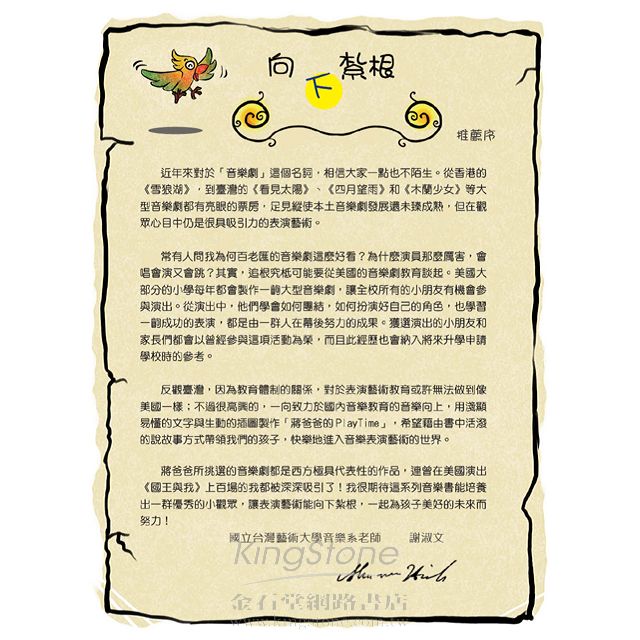 向下紮根
推薦序
近年來對於「音樂劇」這個名詞，相信大家一點也不陌生。從香港的
《雪狼湖》，到臺灣的《看見太陽》、《四月望雨》和《木蘭少女》等大
型音樂劇都有亮眼的票房，足見縱使本土音樂劇發展還未臻成熟，但在觀
眾心目中仍是很具吸引力的表演藝術。
常有人問我為何百老匯的音樂劇這麼好看？為什麼演員那麼厲害，會
唱會演又會跳？其實，追根究柢可能要從美國的音樂劇教育談起。美國大
部分的小學每年都會製作一齣大型音樂劇，讓全校所有的小朋友有機會參
與演出。從演出中，他們學會如何團結，如何扮演好自己的角色，也學習
一齣成功的表演，都是由一群人在幕後努力的成果。獲選演出的小朋友和
家長們都會以曾經參與這項活動為榮，而且此經歷也會納入將來升學申請
學校時的參考。
反觀臺灣，因為教育體制的關係，對於表演藝術教育或許無法做到像
美國一樣；不過很高興的，一向致力於國內音樂教育的音樂向上，用淺顯
易懂的文字與生動的插圖製作「蔣爸爸的PlayTime」，希望藉由書中活潑
的說故事方式帶領我們的孩子，快樂地進入音樂表演藝術的世界。
蔣爸爸所挑選的音樂劇都是西方極具代表性的作品，連曾在美國演出
《國王與我》上百場的我都被深深吸引了！我很期待這系列音樂書能培養
出一群優秀的小觀眾，讓表演藝術能向下紮根，一起為孩子美好的未來而
努力！
國立台灣藝術大學音樂系老師 謝淑文
KingStone
金石堂網路書店
www.kingstone.com.tw